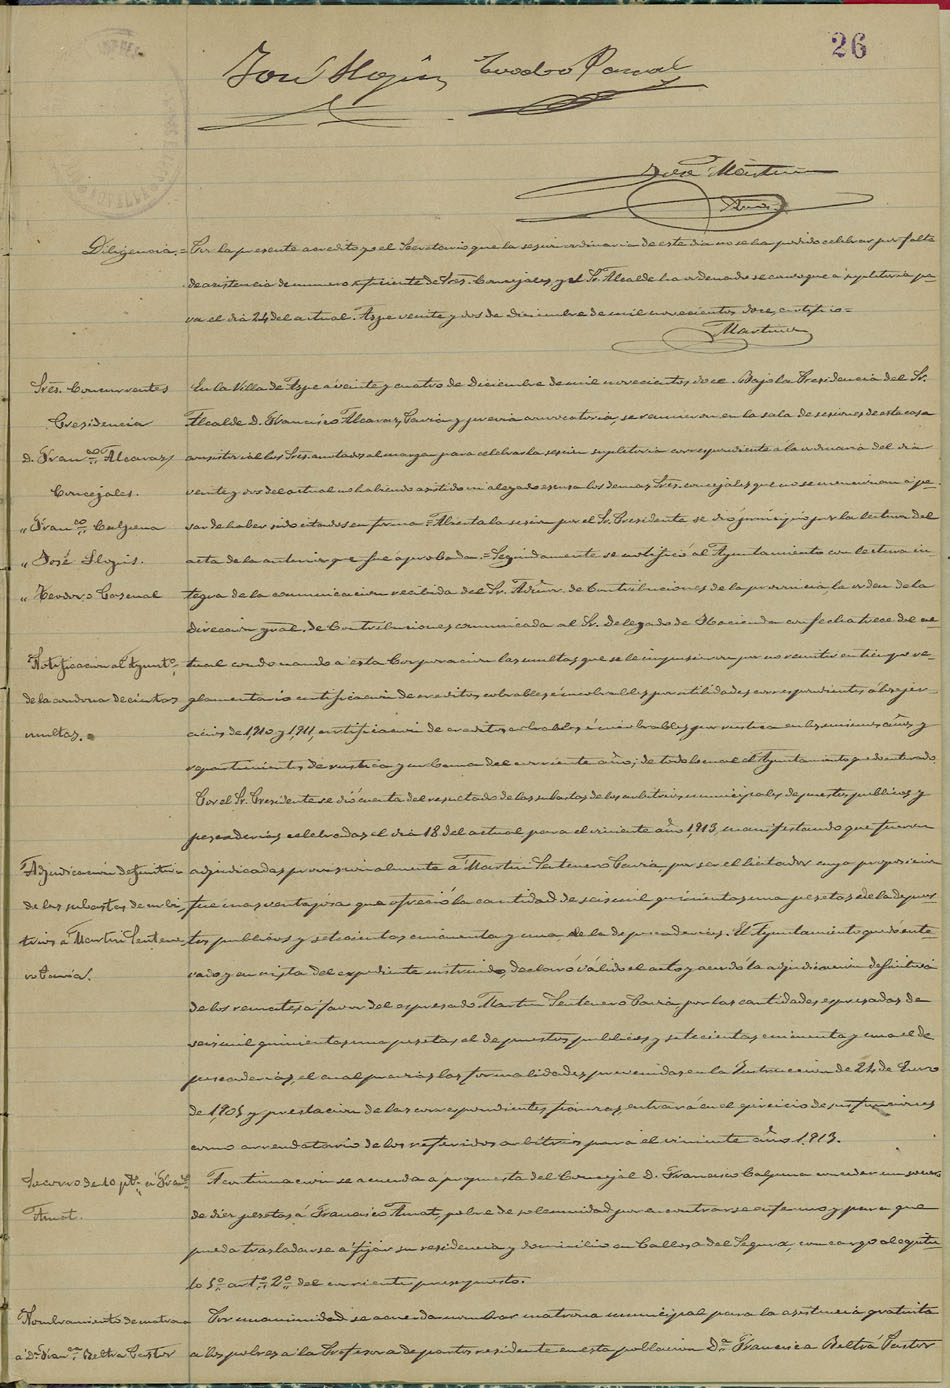 26
José Llopis Teodoro Pascual
José Martinez
Diligencia.= Por la presente acredito yo el Secretario que la sesion ordinaria de este dia no se ha podido celebrar por falta
de asistencia de numero suficiente de Sres. Concejales, y el Sr. Alcalde ha ordenado se convoque á supletoria pa-
ra el dia 24 del actual. Aspe veinte y dos de diciembre de mil novecientos doce, certifico=
Martinez
Sres. Concurrentes
Presidencia
D. Franco Alcaraz
Concejales.
" Franco Calpena
" José Llopis.
" Teodoro Pascual
En la Villa de Aspe á veinte y cuatro de Diciembre de mil novecientos doce. Bajo la Presidencia del Sr.
Alcalde D. Francisco Alcaraz Pavia y previa convocatoria, se reunieron en la sala de sesiones de esta casa
consistorial los Sres. anotados al margen para celebrar la sesion supletoria correspondiente á la ordinaria del dia
veinte y dos del actual no habiendo asistido ni alegado escusa los demas Sres. concejales que no se mencionan á pe-
sar de haber sido citados en forma= Abierta la sesion por el Sr. Presidente se dió principio por la lectura del
acta de la anterior que fue aprobada.= Seguidamente se notificó al Ayuntamiento con lectura in-
tegra de la comunicacion recibida del Sr. Admor. de Contribuciones de la provincia, la orden de la
Direccion gral. de Contribuciones comunicada al Sr. Delegado de Hacienda con fecha trece del ac-
Notificacion al Aynto.
de la condona de ciertas
multas.
tual condonando á esta Corporacion las multas que se le impusieron por no remitir en tiempo re-
glamentario certificacion de creditos cobrables é incobrables por utilidades correspondientes á los ejer-
cicios de 1,910 y 1,911, certificacion de creditos cobrables é incobrables por rustica en los mismos años, y
repartimientos de rustica y urbana del corriente año; de todo lo cual el Ayuntamiento quedo enterado.
Por el Sr. Presidente se dió cuenta del resultado de las subastas de los arbitrios municipales de puestos publicos y
pescaderias, celebradas el dia 18 del actual para el viniente año 1,913, manifestando que fueron
Adjudicacion definitiva
de las subastas de arbi-
trios á Martin Sentene-
ro Pavia.
adjudicadas provisionalmente á Martin Sentenero Pavia, por ser el licitador cuya proposicion
fue mas ventajosa que ofreció la cantidad de seis mil quinientas una pesetas á la de pues-
tos publicos y setecientas cincuenta y una, á la de pescaderias. El Ayuntamiento quedó ente-
rado y en vista del expediente instruido, declaró válido el acto y acordó la adjudicacion definitiva
de los remates á favor del expresado Martin Sentenero Pavia por las cantidades expresadas de
seis mil quinientas una pesetas, el de puestos publicos y setecientas cincuenta y una el de
pescaderias, el cual previas las formalidades prevenidas en la Instruccion de 24 de Enero
de 1,905 y prestacion de las correspondientes fianzas, entrará en el ejercicio de sus funciones
como arrendatario de los referidos arbitrios para el viniente año 1.913.
Socorro de 10 pts. á Franco
Amat.
A continuacion se acuerda á propuesta del Concejal D. Francisco Calpena conceder un socorro
de diez pesetas á Francisco Amat, pobre de solemnidad por encontrarse enfermo y para que
pueda trasladarse á fijar su residencia y domicilio en Callosa del Segura, con cargo al capitu-
lo 5o arto. 2o del corriente presupuesto.
Nombramiento de matrona
á Da. Franca Beltrá Pastor
Por unanimidad se acuerda nombrar matrona municipal para la asistencia gratuita
á los pobres á la Profesora de partos residente en esta poblacion Da Francisca Beltrá Pastor